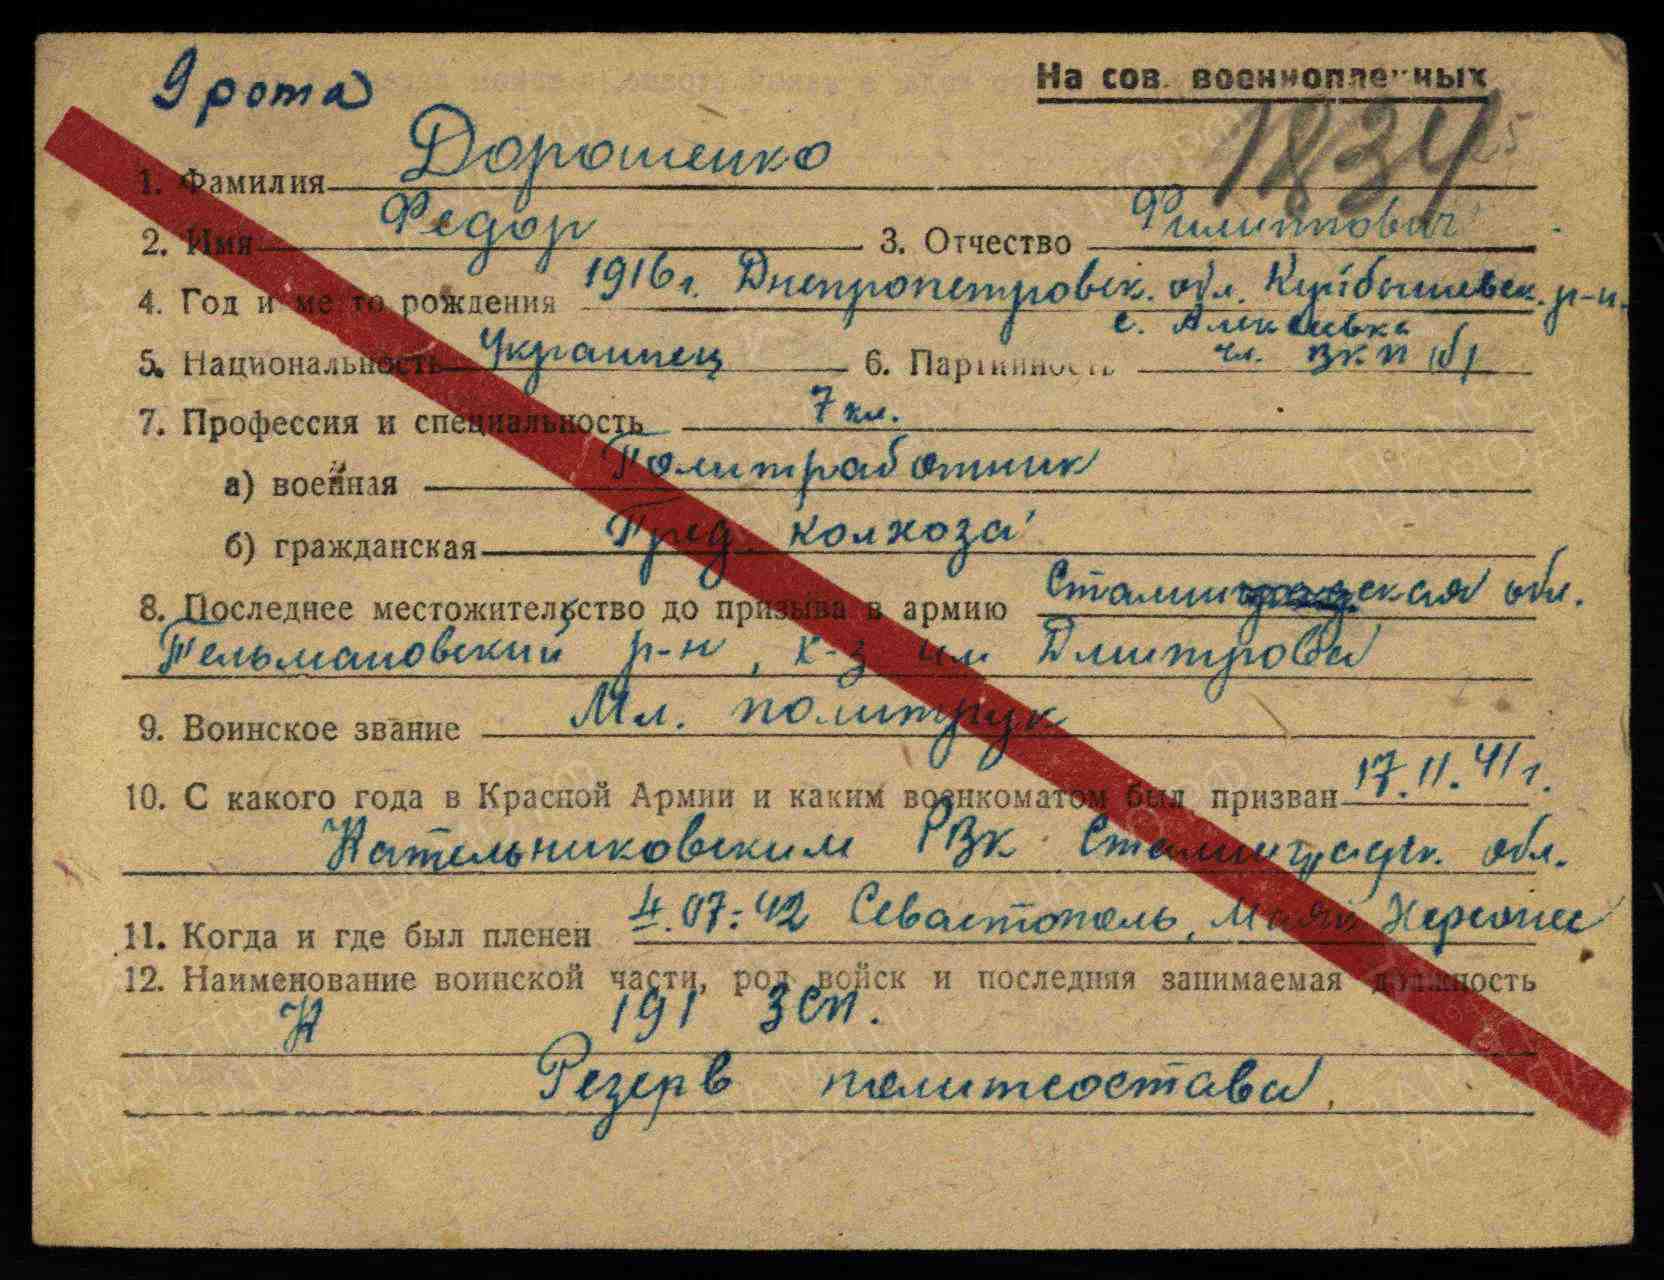 9 рота
На сов. военнопленных
1834
1. Фамилия Дорошенко
2. Имя Федор 3. Отчество Филиппович
4. Год и место рождения 1916 г. Днепропетровск. обл. Куйбышевск. р-н.
с.
5. Национальность Украинец 6. Партийность чл. ВКП(б)
7. Профессия и специальность 7 кл.
а) военная Политработник
б) гражданская Пред. колхоза
8. Последнее местожительство до призыва в армию Сталинская обл.
Тельмановский р-н, к-з им Дмитрова
9. Воинское звание Мл. политрук
10. С какого года в Красной Армии и каким военкоматом был призван 17.11.41 г.
Котельниковским РВК Сталинградск. обл.
11. Когда и где был пленен 4.07.42 Севастополь, Маяк Херсонес
12. Наименование воинской части, род войск и последняя занимаемая должность
К 191 ЗСП.
Резерв политсостава